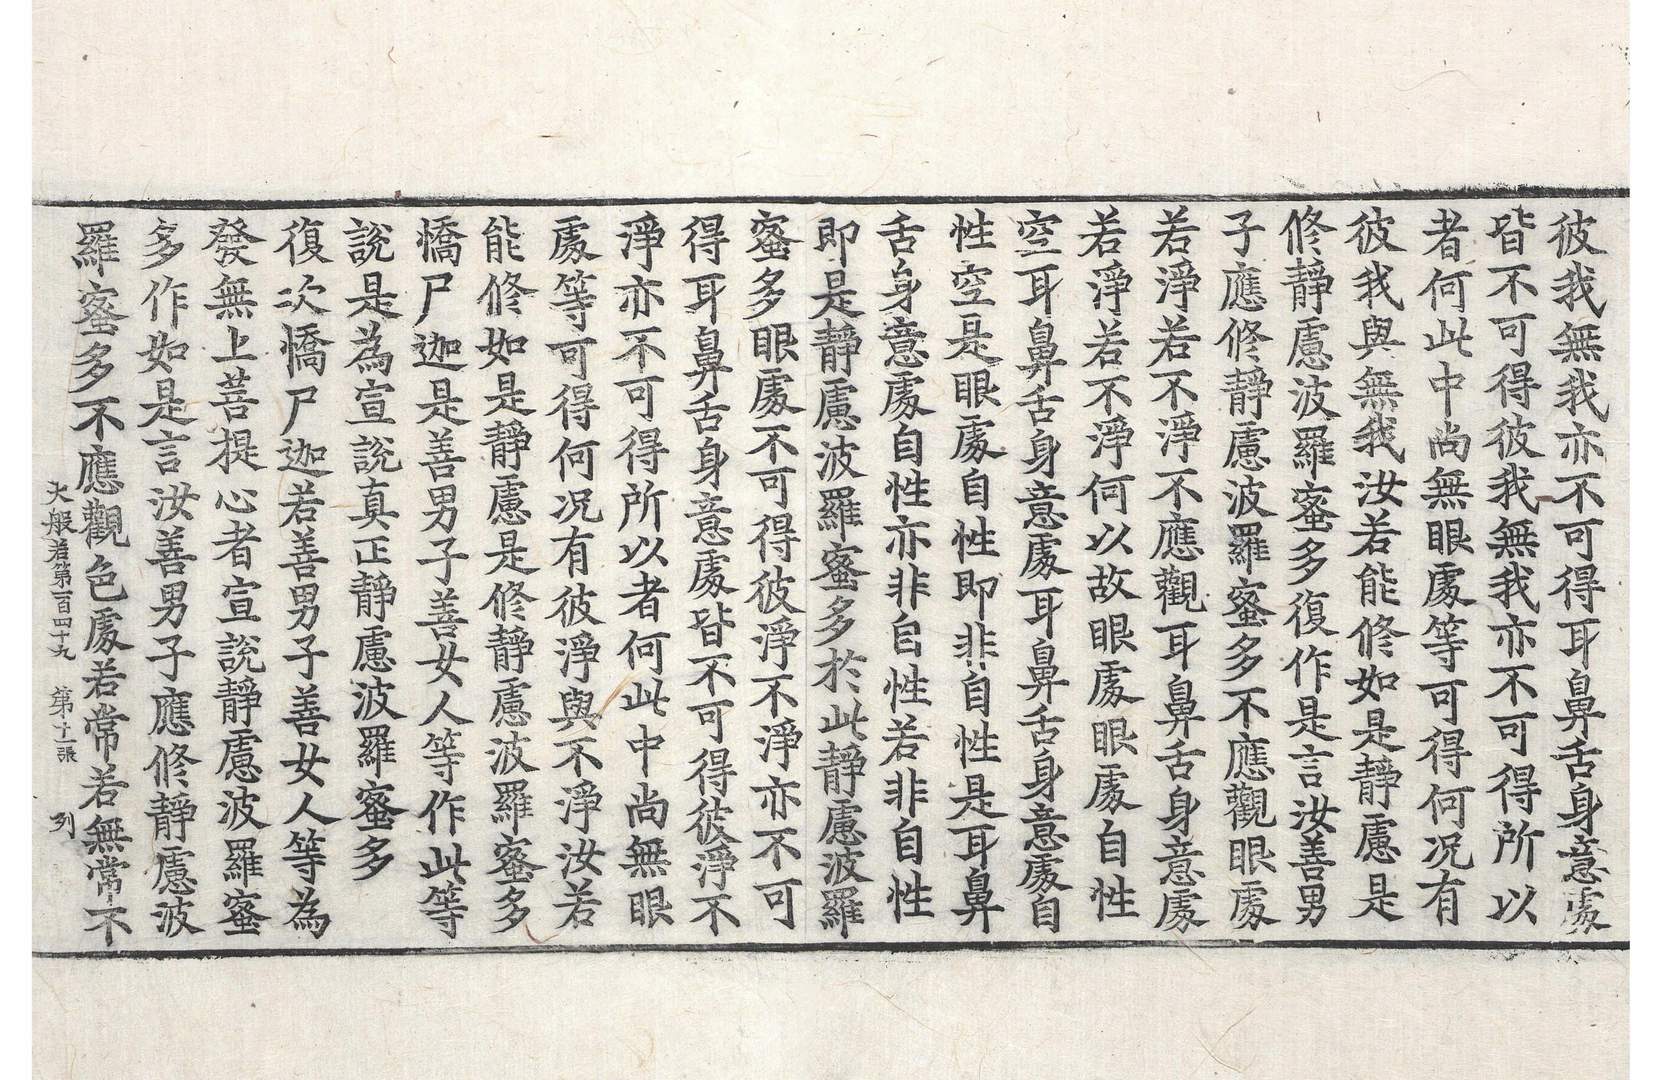 彼我無我亦不可得耳鼻舌身意處
皆不可得彼我無我亦不可得所以
者何此中尚無眼處等可得何況有
彼我與無我汝若能修如是靜慮是
修靜慮波羅蜜多復作是言汝善男
子應修靜慮波羅蜜多不應觀眼處
若淨若不淨不應觀耳鼻舌身意處
若淨若不淨何以故眼處眼處自性
空耳鼻舌身意處耳鼻舌身意處自
性空是眼處自性即非自性是耳鼻
舌身意處自性亦非自性若非自性
即是靜慮波羅蜜多於此靜慮波羅
蜜多眼處不可得彼淨不淨亦不可
得耳鼻舌身意處皆不可得彼淨不
淨亦不可得所以者何此中尚無眼
處等可得何况有彼淨與不淨汝若
能修如是靜慮是修靜慮波羅蜜多
憍尸迦是善男子善女人等作此等
說是為宣說真正靜慮波羅蜜多
復次憍尸迦若善男子善女人等為
發無上菩提心者宣說靜慮波羅蜜
多作如是言汝善男子應修靜慮波
羅蜜多不應觀色處若常若無常不
大般若第一百四十九 第十二張 列